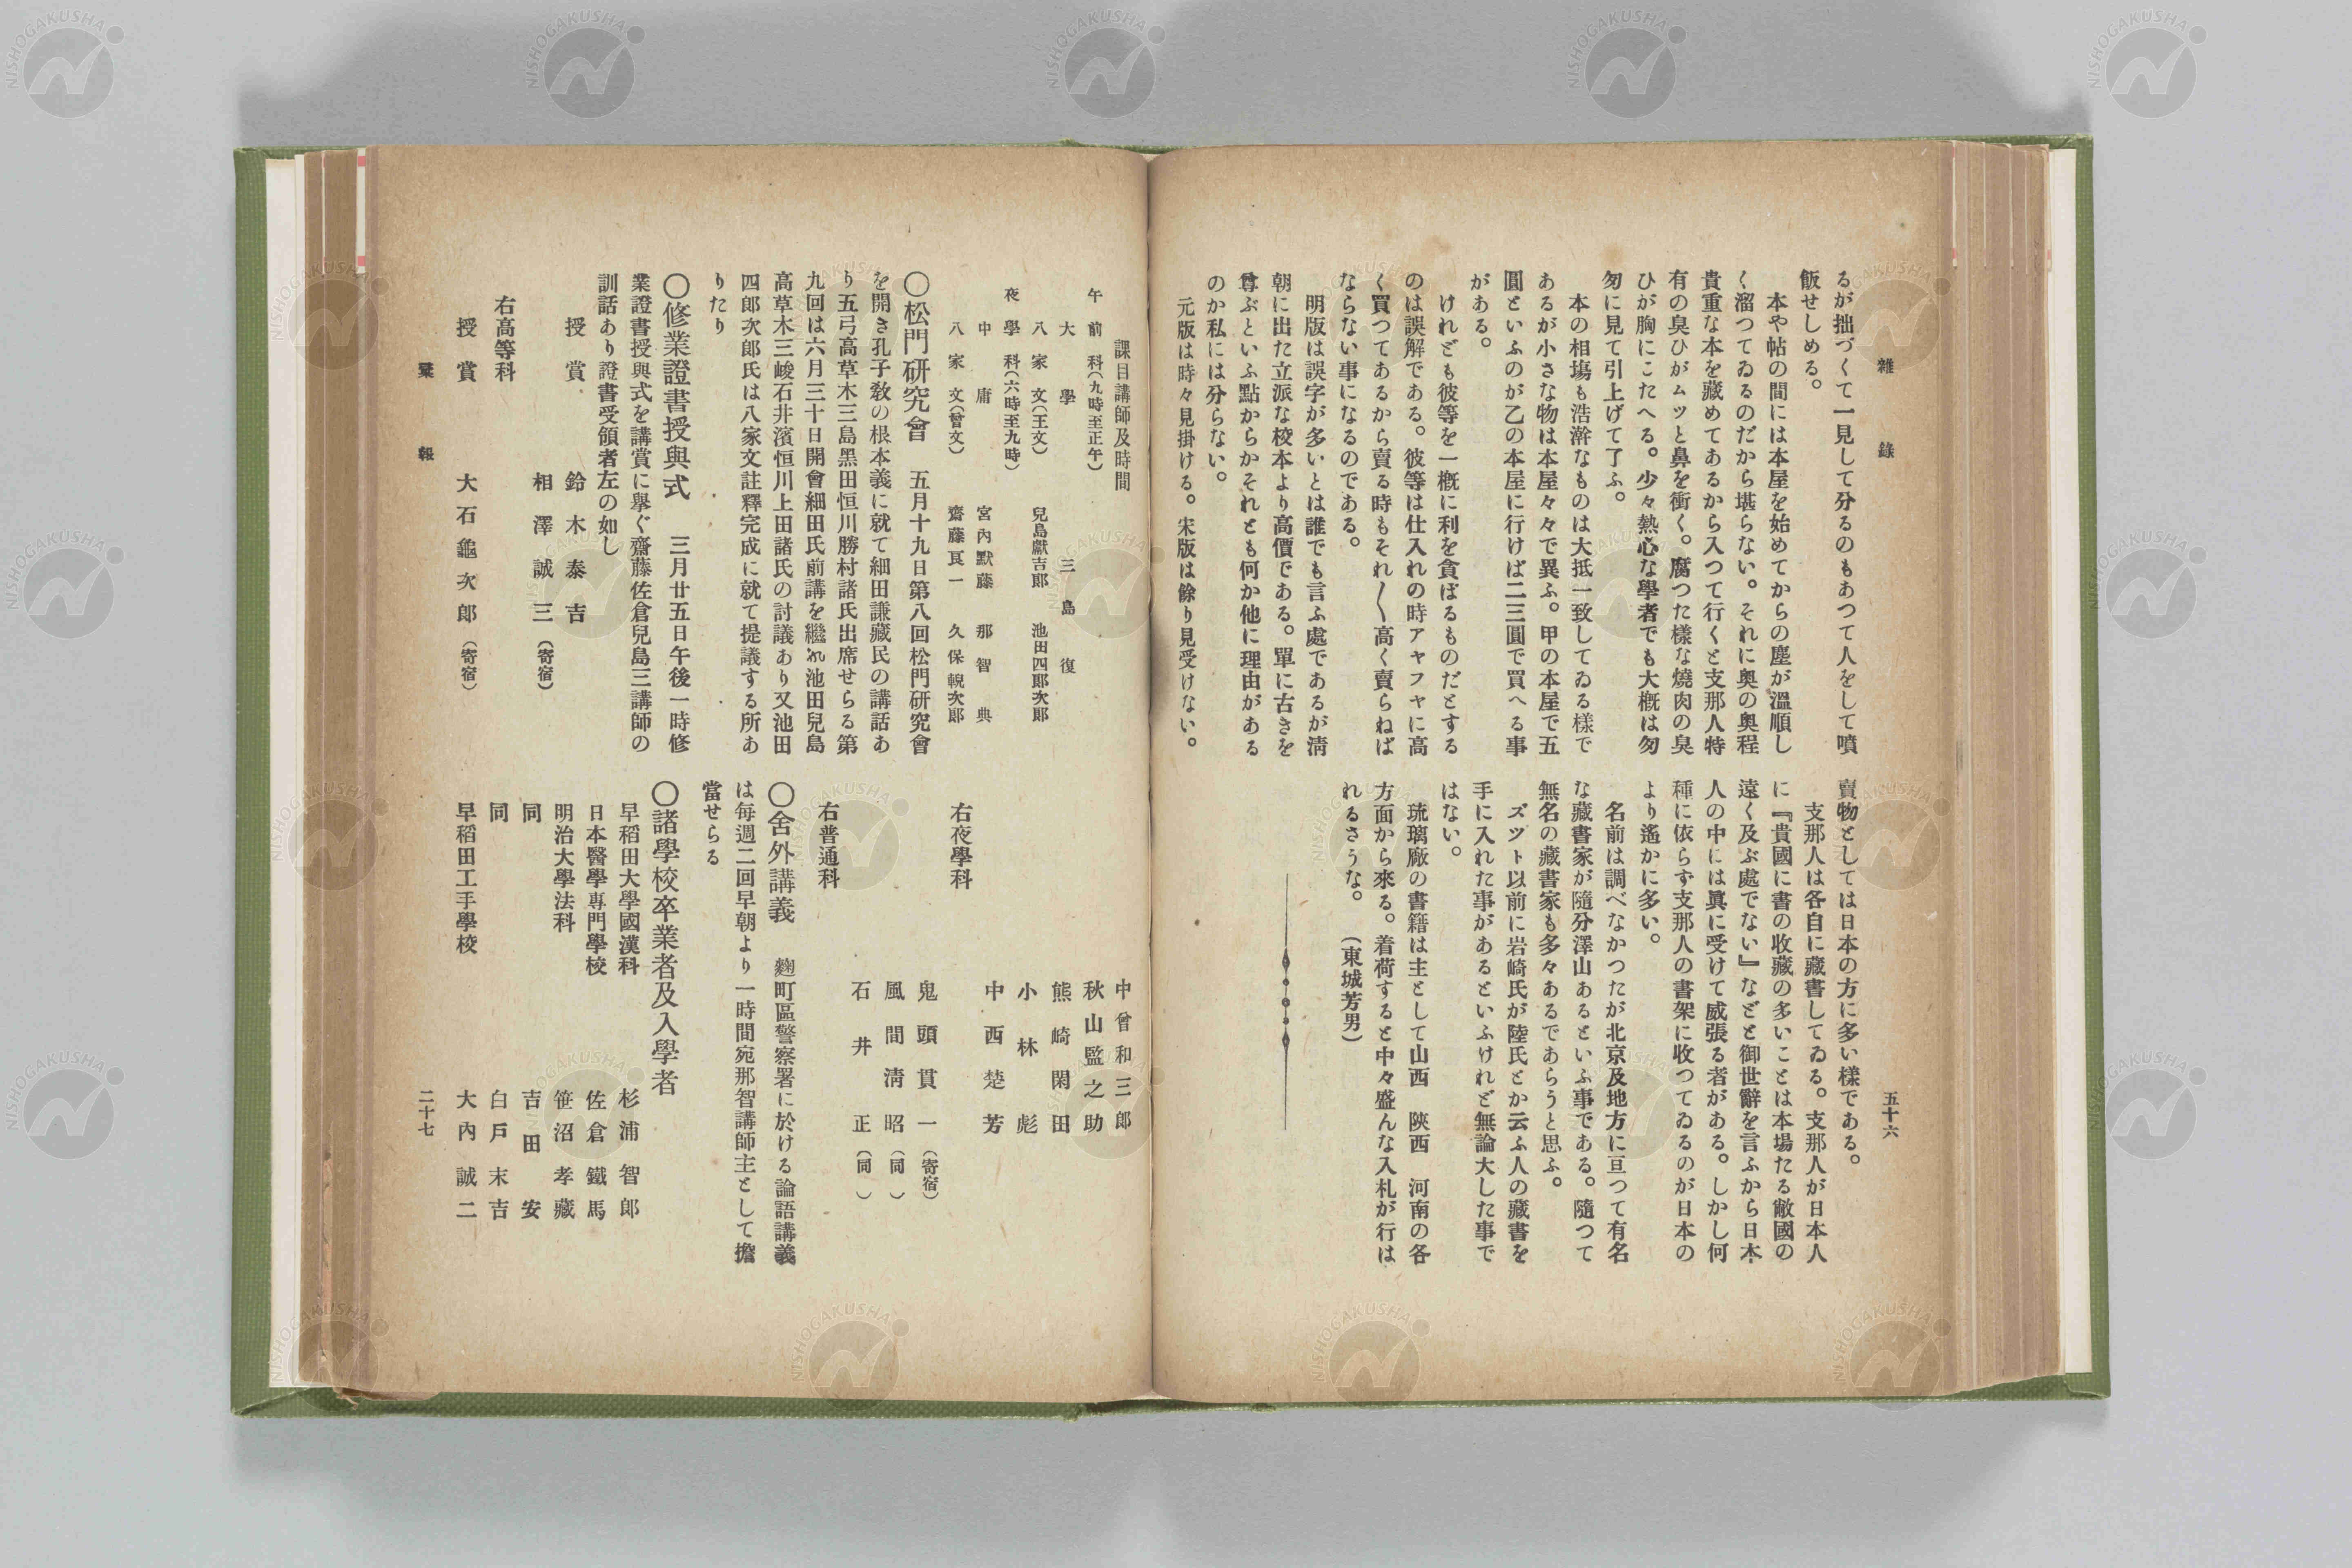 雜錄
五十六
るが拙づくて一見して分るのもあつて人をして噴
飯せしめる。
本や帖の間には本屋を始めてからの塵が溫順し
く溜つてゐるのだから堪らない。それに奥の奥程
貴重な本を藏めてあるから入つて行くと支那人特
有の臭ひがムツと鼻を衝く。腐つた樣な燒肉の臭
ひが胸にこたへる。少々熱心な學者でも大概は匆
匆に見て引上げて了ふ。
本の相塲も浩瀚なものは大抵一致してゐる樣で
あるが小さな物は本屋々々で異ふ。甲の本屋で五
圓といふのが乙の本屋に行けば二三圓で買へる事
がある。
けれども彼等を一概に利を貪ぼるものだとする
のは誤解である。彼等は仕入れの時アヤフヤに高
く買つてあるから賣る時もそれ〱高く賣らねば
ならない事になるのである。
明版は誤字が多いとは誰でも言ふ處であるが淸
朝に出た立派な校本より高價である。單に古きを
尊ぶといふ點からかそれとも何か他に理由がある
のか私には分らない。
元版は時々見掛ける。宋版は餘り見受けない。
賣物としては日本の方に多い樣である。
支那人は各自に藏書してゐる。支那人が日本人
に『貴國に書の收藏の多いことは本場たる敝國の
遠く及ぶ處でない』などと御世辭を言ふから日本
人の中には眞に受けて威張る者がある。しかし何
種に依らず支那人の書架に收つてゐるのが日本の
より遙かに多い。
名前は調べなかつたが北京及地方に亘つて有名
な藏書家が隨分澤山あるといふ事である。隨つて
無名の藏書家も多々あるであらうと思ふ。
ズツト以前に岩崎氏が陸氏とか云ふ人の藏書を
手に入れた事があるといふけれど無論大した事で
はない。
琉璃廠の書籍は主として山西 陝西 河南の各
方面から來る。着荷すると中々盛んな入札が行は
れるさうな。 (東城芳男)
課目講師及時間
午前科(九時至正午)
大學 三島復
八家文(王文) 兒島獻吉郞 池田四郞次郞
夜學科(六時至九時)
中庸 宮內默藏 那智典
八家文(曾文) 齋藤良一 久保輗次郞
〇松門研究會 五月十九日第八回松門研究會
を開き孔子敎の根本義に就て細田謙藏民の講話あ
り五弓高草木三島黑田恒川勝村諸氏出席せらる第
九回は六月三十日開會細田氏前講を繼れ池田兒島
高草木三峻石井濱恒川上田諸氏の討議あり又池田
四郞次郞氏は八家文註釋完成に就て提議する所あ
りたり
〇修業證書授與式 三月廿五日午後一時修
業證書授與式を講賞に擧ぐ齋藤佐倉兒島三講師の
訓話あり證書受領者左の如し
授賞 鈴木泰吉
相澤誠三(寄宿)
右高等科
授賞 大石龜次郞(寄宿)
中曾和三郞
秋山監之助
熊崎閑田
小林彪
中西楚芳
右夜學科
鬼頭貫一(寄宿)
風間淸昭(同)
石井正(同)
右普通科
〇舍外講義 麴町區警察署に於ける論語講義
は每週二回早朝より一時間宛那智講師主として擔
當せらる
〇諸學校卒業者及入學者
早稻田大學國漢科 杉浦智郞
日本醫學專門學校 佐倉鐵馬
明治大學法科 笹沼孝藏
同 吉田安
同 白戶末吉
早稻田工手學校 大內誠二
彙報
二十七
NISHOGAKUSHA